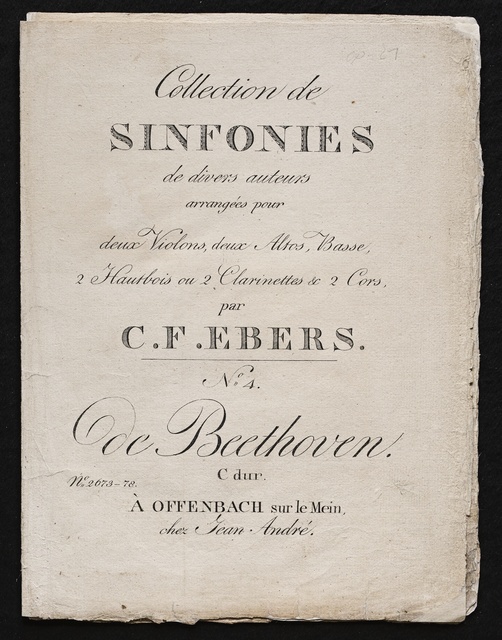 Collection de
SINFONIES
de divers auteurs
arrangées pour
deux Violons, deux Altos, Basse,
2 Hautbois ou 2 Clarinettes & 2 Cors,
par
C.F.EBERS.
No. 4.
de Beethoven.
C dur.
No. 2673-78.
À OFFENBACH sur le Mein,
chez Jean André.